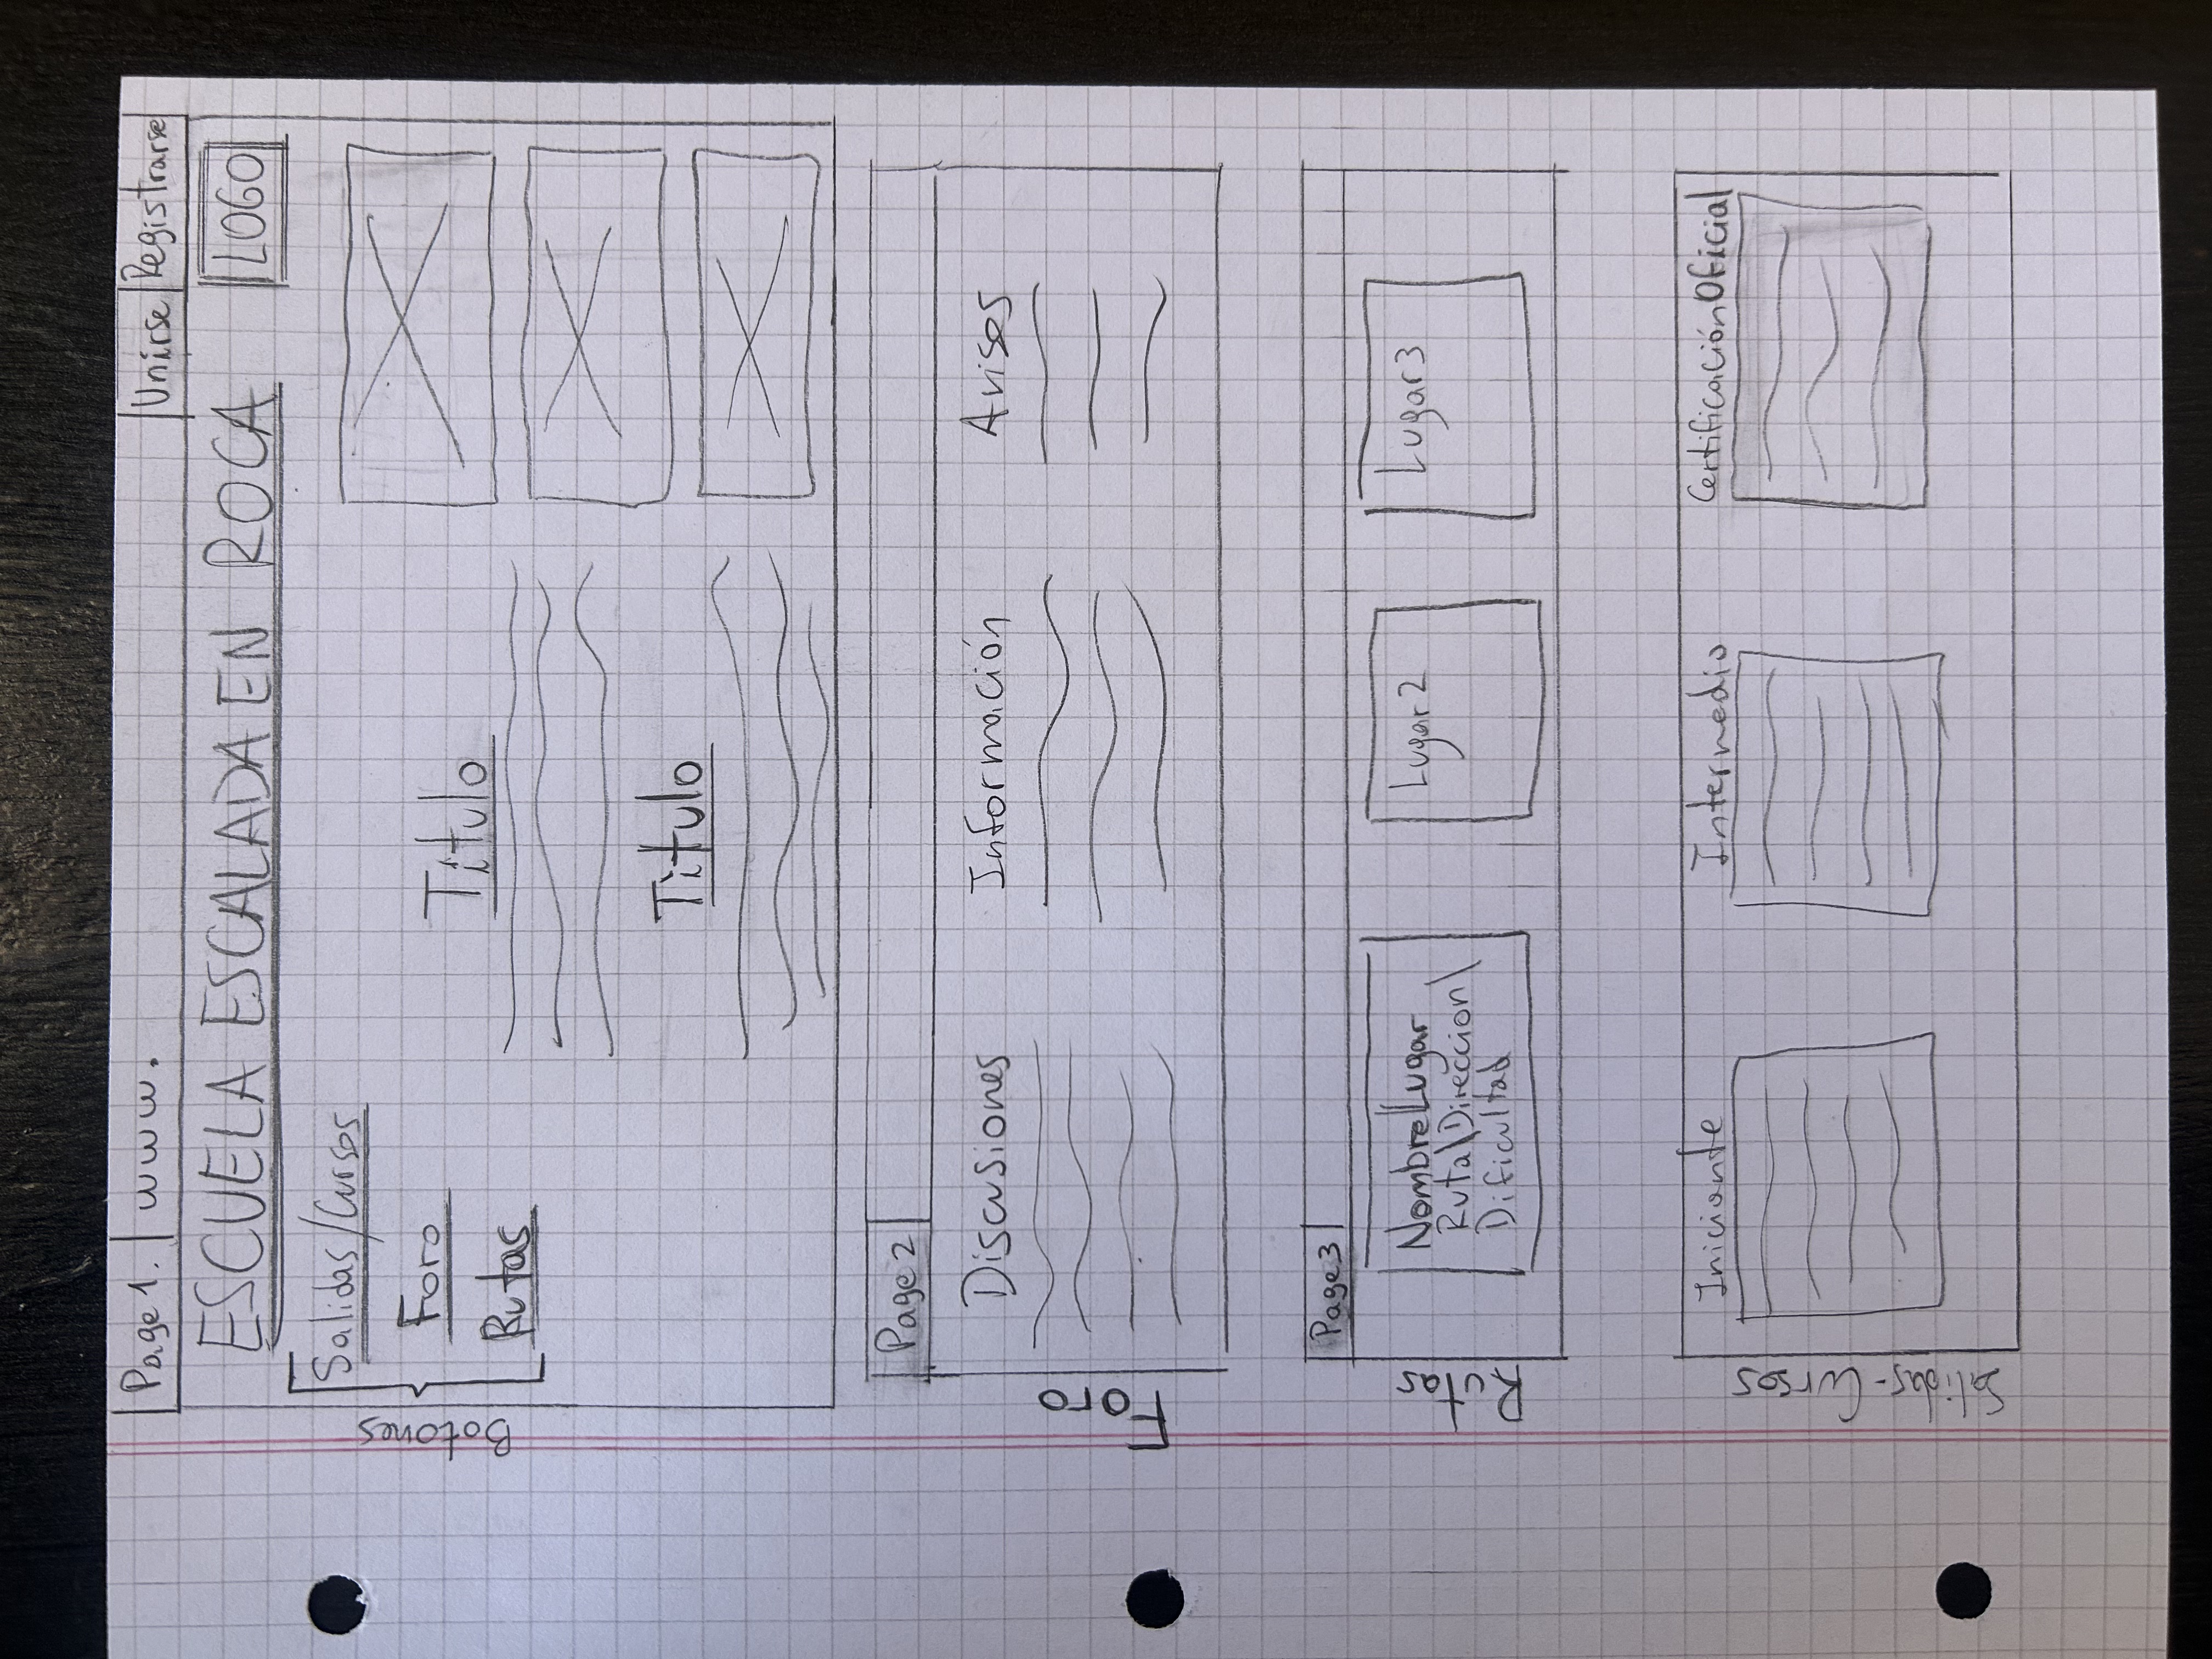 Page 1.
www.
Unirse
Registrarse
ESCUELA ESCALADA EN ROCA
LOGO
Botones
Salidas/Cursos
Foro
Rutas
Titulo
Titulo
Page 2
Foro
Discusiones
Información
Avisos
Page 3
Rutas
Nombre Lugar
Ruta\Direccion\
Dificultad
Lugar 2
Lugar 3
Salidas-Cursos
Iniciante
Intermedio
Certificación Oficial